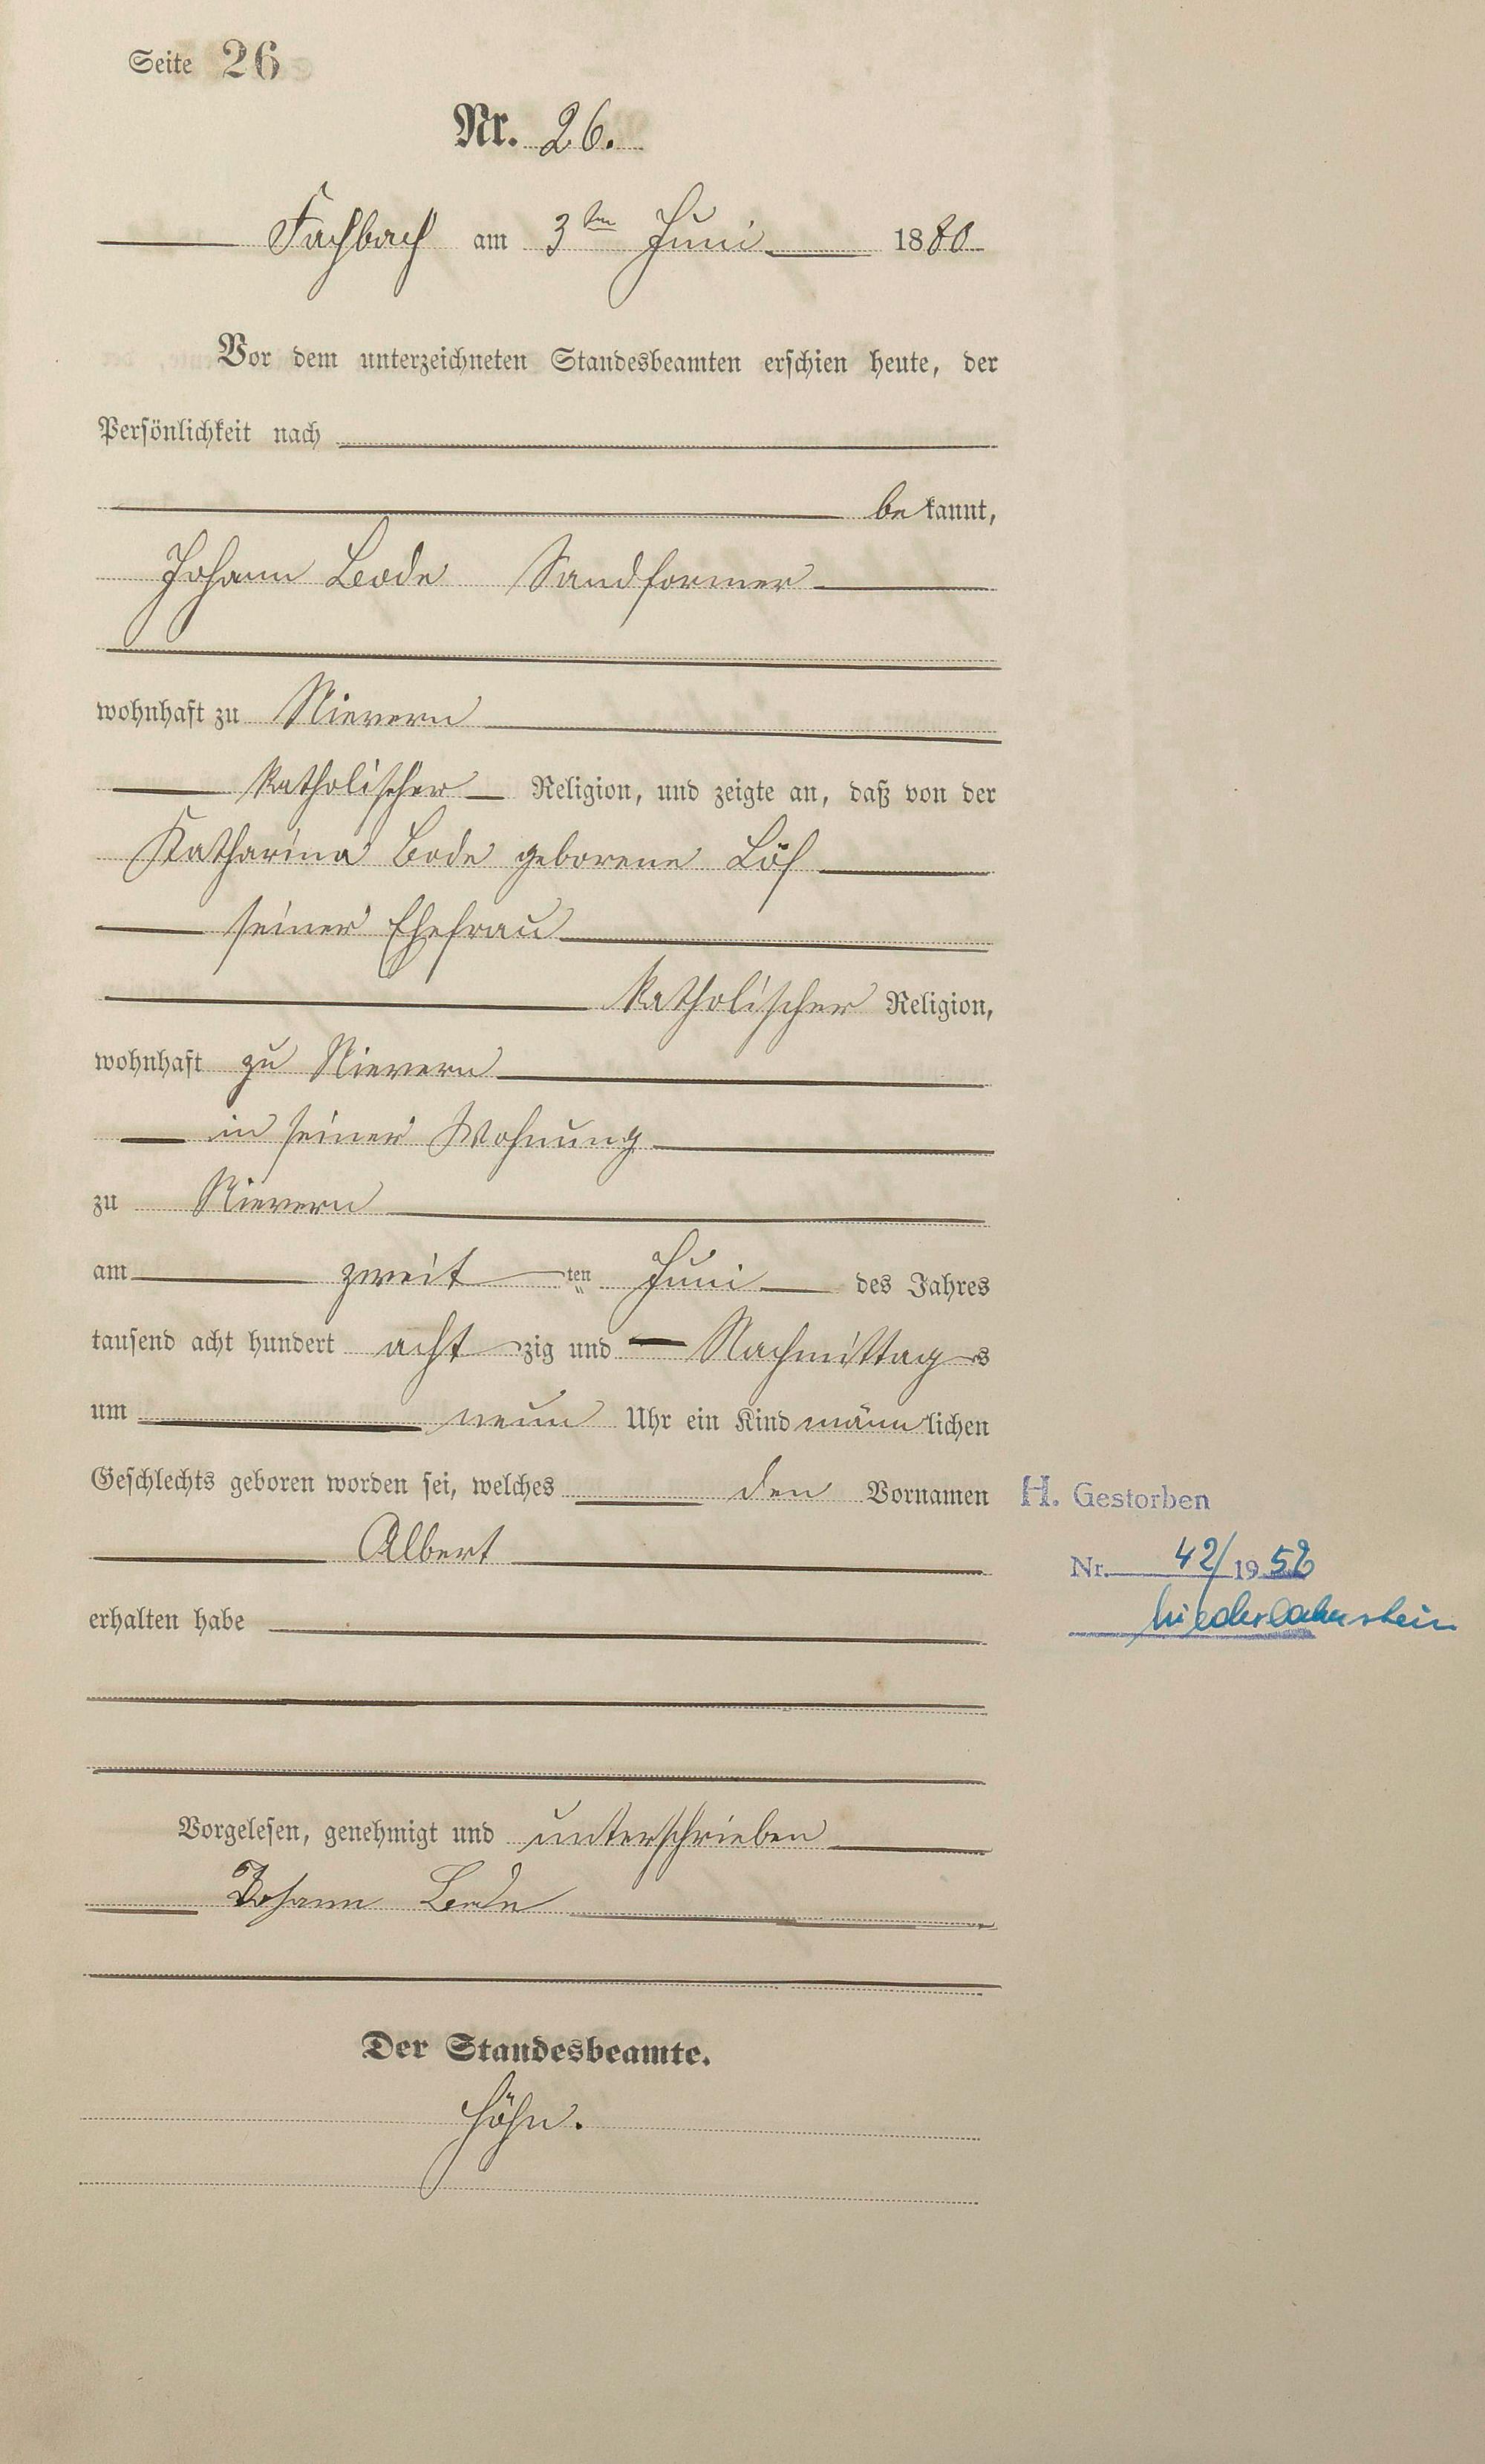 Seite 26
Nr. 26.
Fachbach am 3ten Juni 1880
Vor dem unterzeichneten Standesbeamten erschien heute, der
Persönlichkeit nach
bekannt,
Johann Bode Sandformer
wohnhaft zu Nievern
katholischer Religion, und zeigte an, daß von der
Katharina Bode geborene Löf
seiner Ehefrau
katholischer Religion,
wohnhaft zu Nievern
in seiner Wohnung
zu Nievern
am zweit ten Juni des Jahres
tausend acht hundert acht zig und Nachmittags
um neun Uhr ein Kind männlichen
Geschlechts geboren worden sei, welches den Vornamen
H. Gestorben
Albert
Nr. 42/1958
erhalten habe
Niederlahnstein
Vorgelesen, genehmigt und unterschrieben
Johann Bode
Der Standesbeamte.
Höhn.